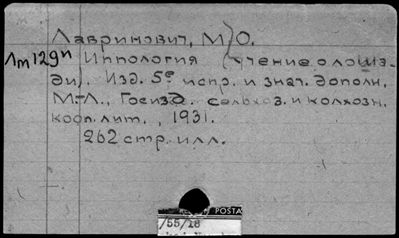 Лавринович, М) О.
Лт129п Иппология (учение о лошa-
ди). Изд. 5е испр. и знач. дополн.
М.-Л., Госизд. сельхоз. и колхозн.
кооп. лит., 1931.
262 стр. илл.
POSTA
/55/18